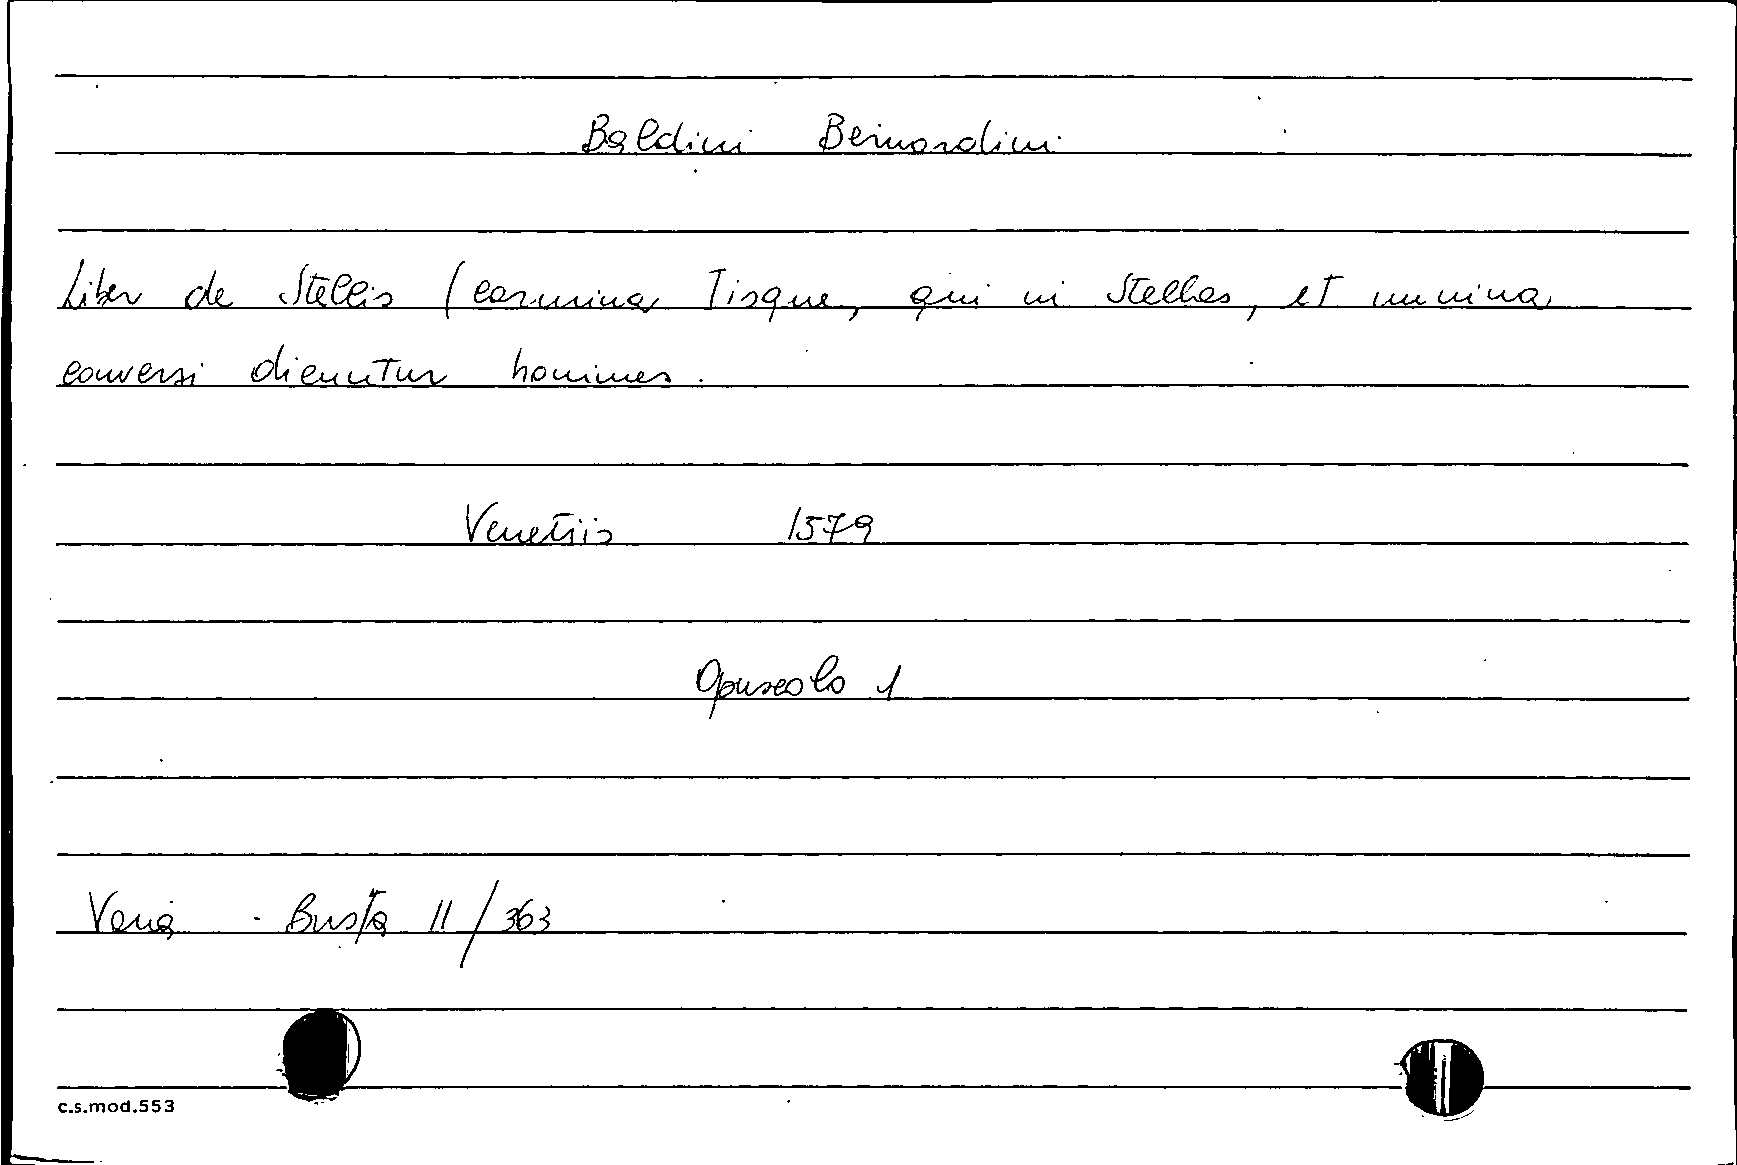 Baldini Bernardini
Liber de Stellis (carmina Iisque, qui in Stellas, et numina
conversi dicuntur homines.
Venetiis 1579
Opuscolo 1
Varia - Busta 11/363
c.s.mod.553